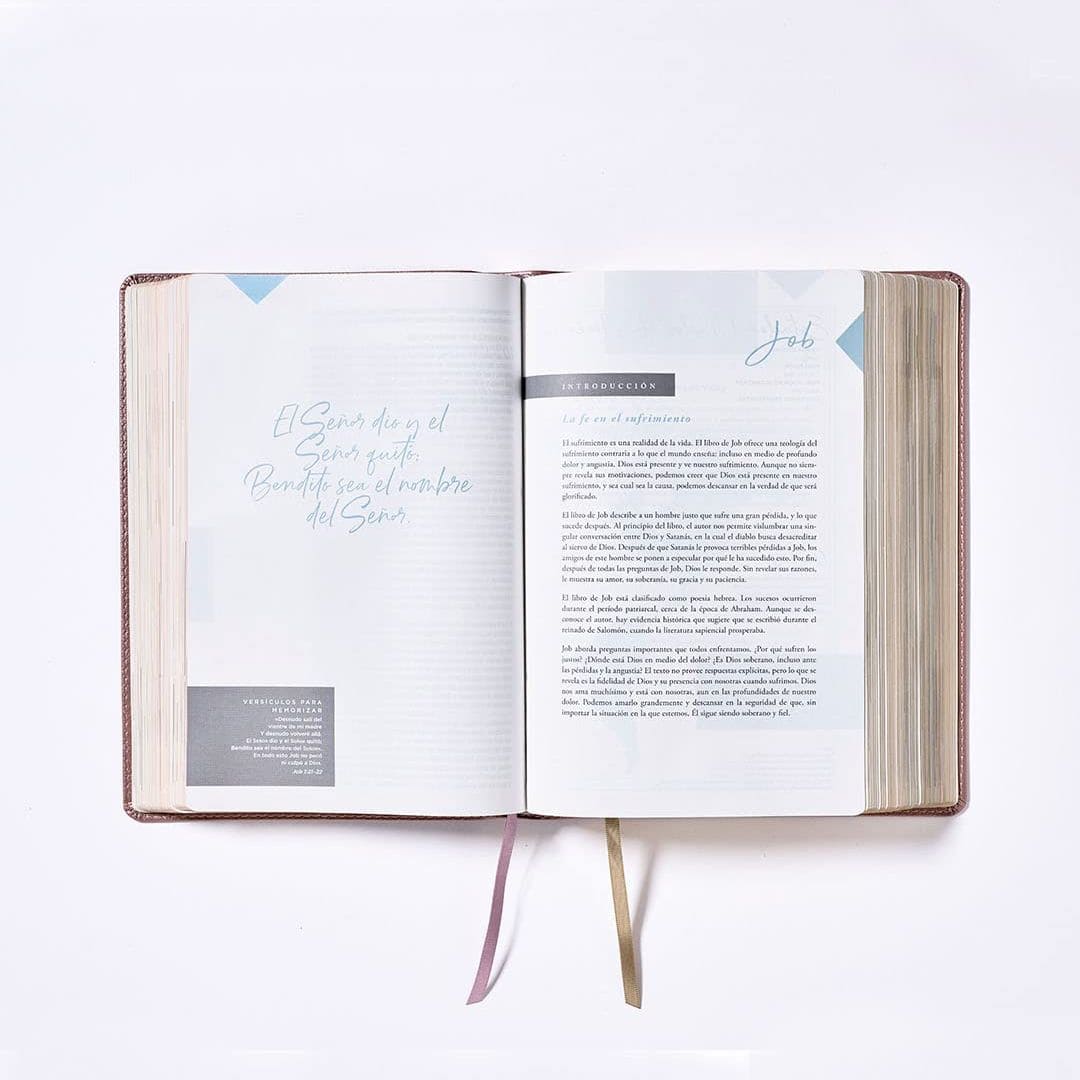 El Señor dio y el
Señor quitó;
Bendito sea el nombre
del Señor.
VERSÍCULOS PARA
MEMORIZAR
«Desnudo salí del
vientre de mi madre
Y desnudo volveré allá.
El Señor dio y el Señor quitó;
Bendito sea el nombre del Señor».
En todo esto Job no pecó
ni culpó a Dios.
Job 1:21-22
Job
INTRODUCCIÓN
La fe en el sufrimiento
El sufrimiento es una realidad de la vida. El libro de Job ofrece una teología del
sufrimiento contraria a lo que el mundo enseña: incluso en medio de profundo
dolor y angustia, Dios está presente y ve nuestro sufrimiento. Aunque no siem-
pre revela sus motivaciones, podemos creer que Dios está presente en nuestro
sufrimiento, y sea cual sea la causa, podemos descansar en la verdad de que será
glorificado.
El libro de Job describe a un hombre justo que sufre una gran pérdida, y lo que
sucede después. Al principio del libro, el autor nos permite vislumbrar una sin-
gular conversación entre Dios y Satanás, en la cual el diablo busca desacreditar
al siervo de Dios. Después de que Satanás le provoca terribles pérdidas a Job, los
amigos de este hombre se ponen a especular por qué le ha sucedido esto. Por fin,
después de todas las preguntas de Job, Dios le responde. Sin revelar sus razones,
le muestra su amor, su soberanía, su gracia y su paciencia.
El libro de Job está clasificado como poesía hebrea. Los sucesos ocurrieron
durante el período patriarcal, cerca de la época de Abraham. Aunque se des-
conoce el autor, hay evidencia histórica que sugiere que se escribió durante el
reinado de Salomón, cuando la literatura sapiencial prosperaba.
Job aborda preguntas importantes que todos enfrentamos. ¿Por qué sufren los
justos? ¿Dónde está Dios en medio del dolor? ¿Es Dios soberano, incluso ante
las pérdidas y la angustia? El texto no provee respuestas explícitas, pero lo que se
revela es la fidelidad de Dios y su presencia con nosotras cuando sufrimos. Dios
nos ama muchísimo y está con nosotras, aun en las profundidades de nuestro
dolor. Podemos amarlo grandemente y descansar en la seguridad de que, sin
importar la situación en la que estemos, Él sigue siendo soberano y fiel.